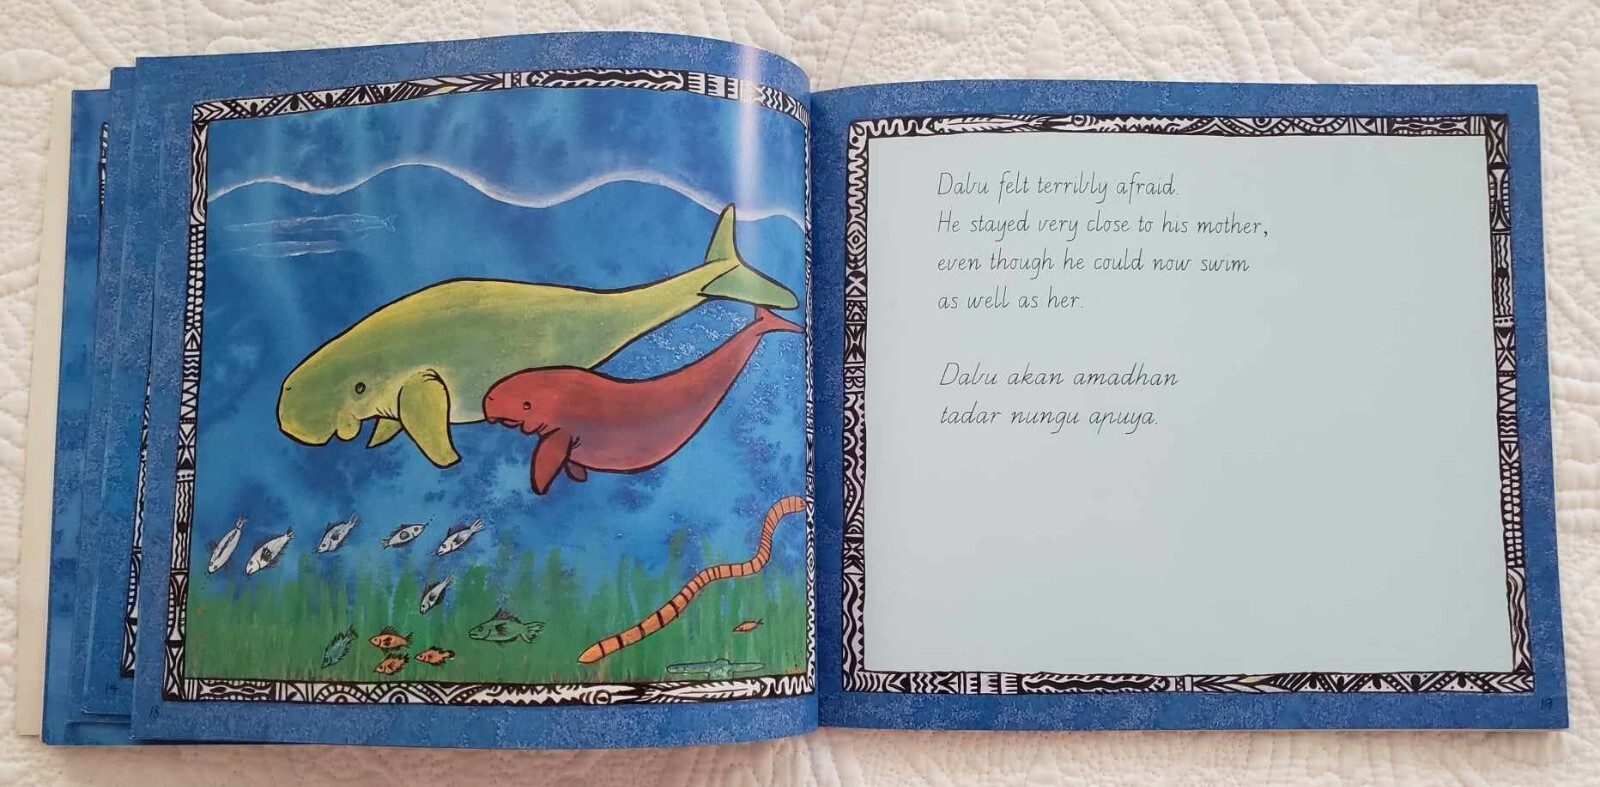 Dabu felt terribly afraid.
He stayed very close to his mother,
even though he could now swim
as well as her.
Dabu akan amadhan
tadar nungu apuya.
14
18
19